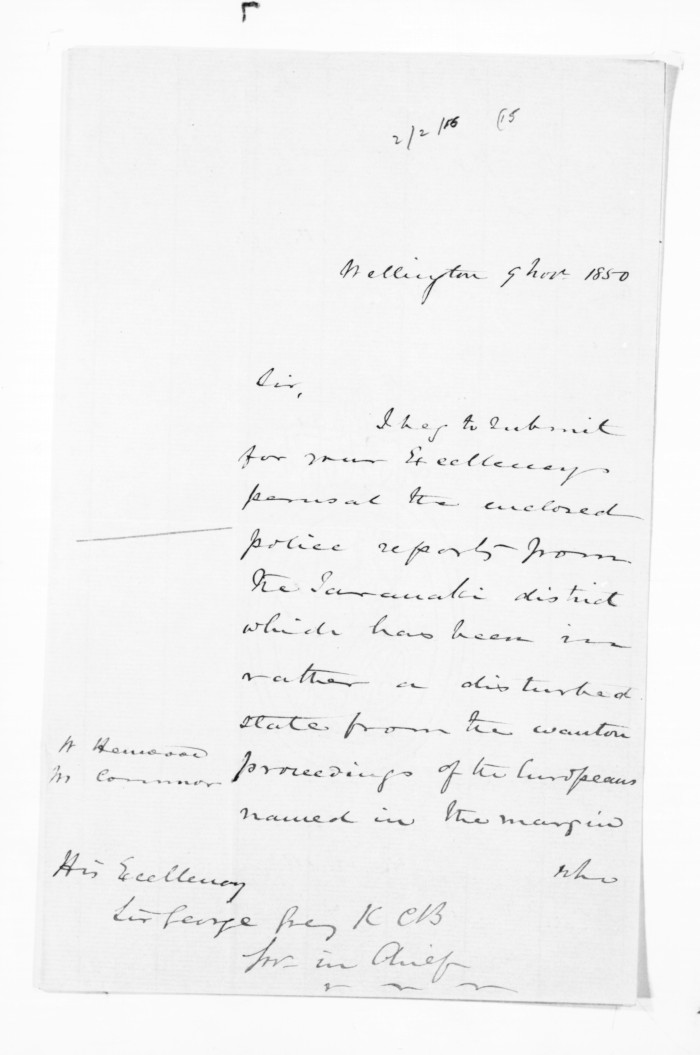 2/2/56 (15
Wellington 9 Novr. 1850
Sir,
I beg to submit
for your Excellency's
perusal the enclosed
police reports from
the Taranaki district
which has been in
rather a disturbed
state from the wanton
proceedings of the Europeans
named in the margin
who
W Henwood
M Connnor
His Excellency
Sir George Grey K C B
Govr in Chief